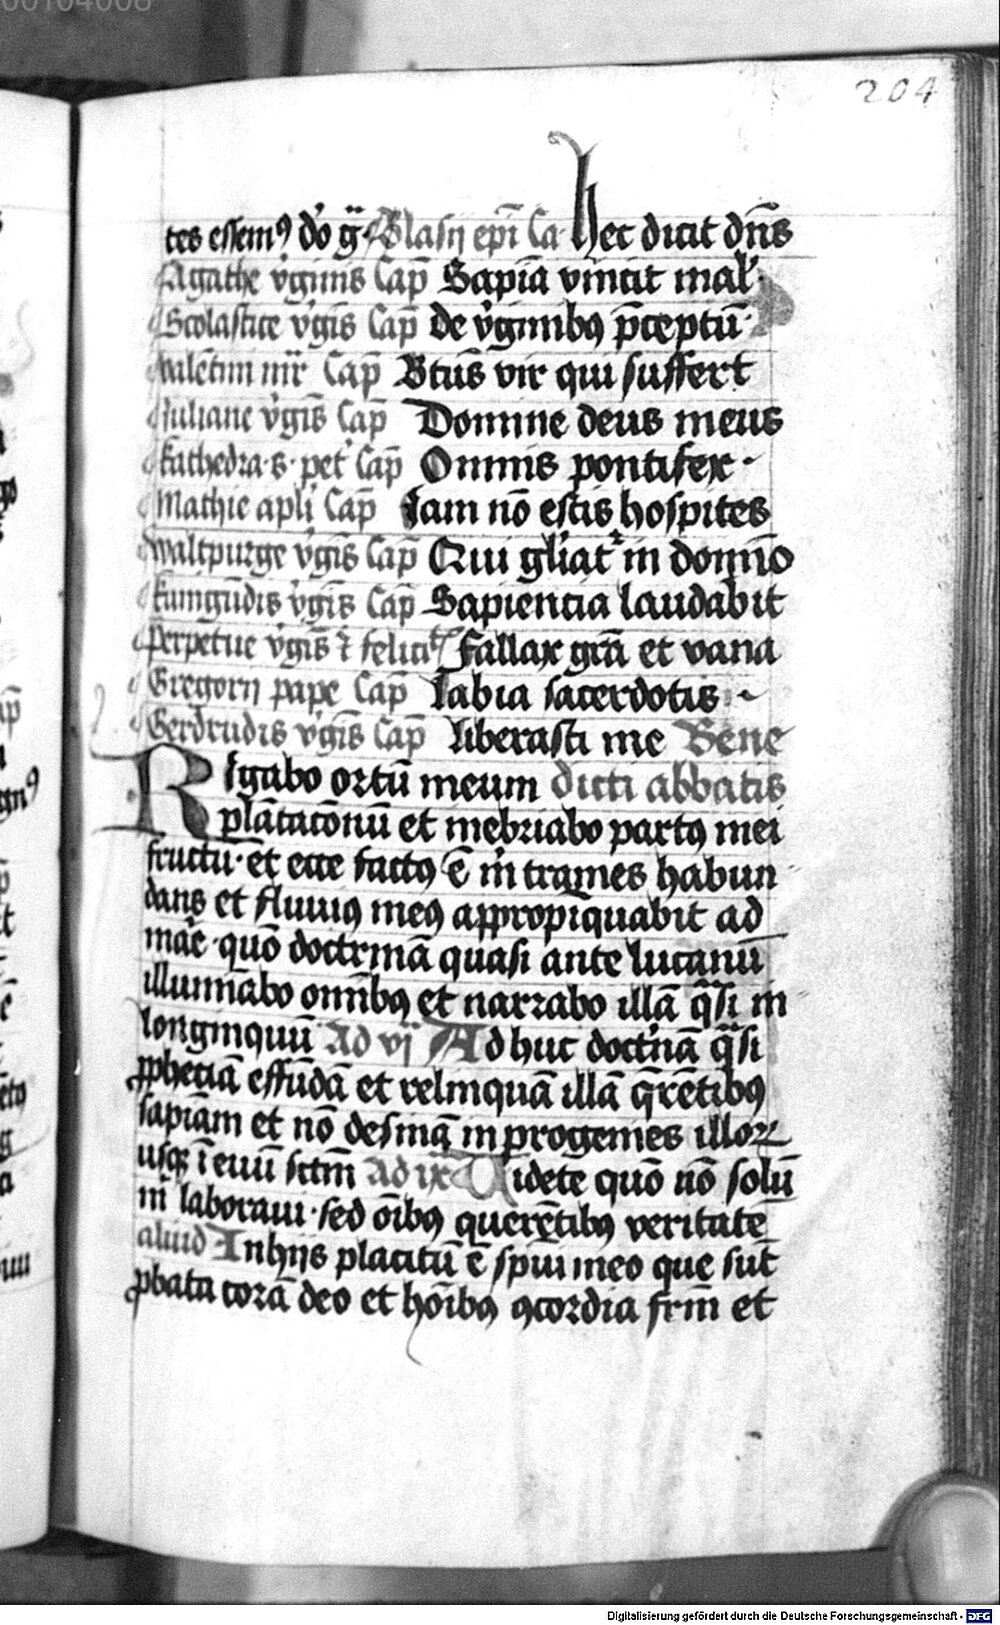 204
tes essemꝰ do gr̄ Blasij epi Ca Hec dicit dn̄s
Agathe v̓ginis Cap̄ Sapia vincit mal
Scolastice v̓gis Cap̄ De v̓ginibꝰ p̄ceptū
valētini mr̄ Cap̄ Btūs vir qui suffert
Juliane v̓gis Cap̄ Domine deus meus
Kathedra s· pet Cap̄ Omnis pontifex
Mathie apli Cap̄ Jam nō estis hospites
waltpurge v̓gis Cap̄ Qui gliat̓ in domīo
kunigūdis v̓gis Cap̄ Sapientia laudabit
Perpetue v̓gis ⁊ felicit̓ Fallax gr̄a et vana
Gregorij pape Cap̄ Labia sacerdotis
Gerdrudis v̓gis Cap̄ liberasti me Bene
Rigabo ortū meum dicti abbatis
plātacōnū et inebriabo partꝰ mei
fructū· et ecce factꝰ ē m̓ trames habun
dans et fluuiꝰ meꝰ appropiquabit ad
mar̓e quō doctrinā quasi ante lucanū
illumiābo omibꝰ et narrabo illā q̄si in
longinquū Ad vj Adhuc doctnā q̄si
ꝓphetiā effūdā et relinquā illā q̄rētibꝰ
sapiam et nō desinā in progenies illoꝝ
usqꝫ ī euū sctm̄ Ad ix Uidete quō nō solū
m̓ laboraui· sed ōibꝰ querētibꝰ veritatē
aliud Inhijs placitū ē spūi meo que sūt
ꝓbata corā deo et hōibꝰ ꝯcordia frm̄ et
Digitalisierung gefördert durch die Deutsche Forschungsgemeinschaft - DFG